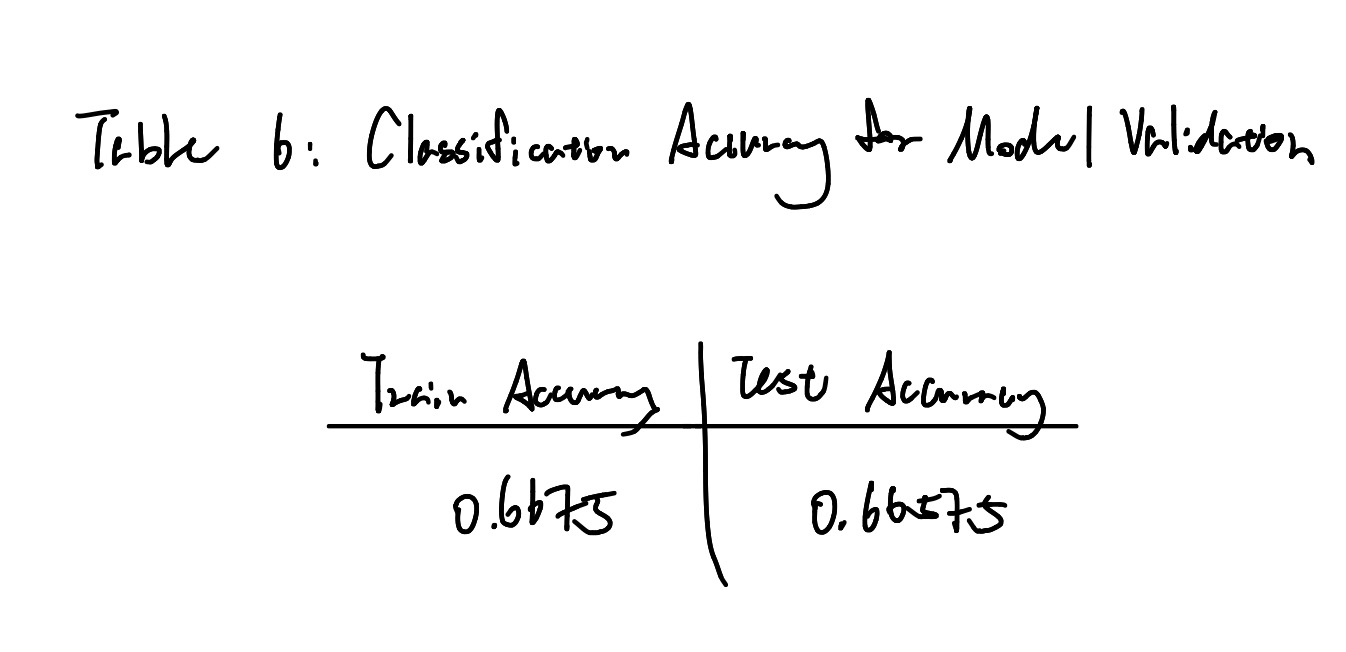 Table 6: Classification Accuracy for Model Validation
Train Accuracy Test Accuracy
0.6675 0.66575